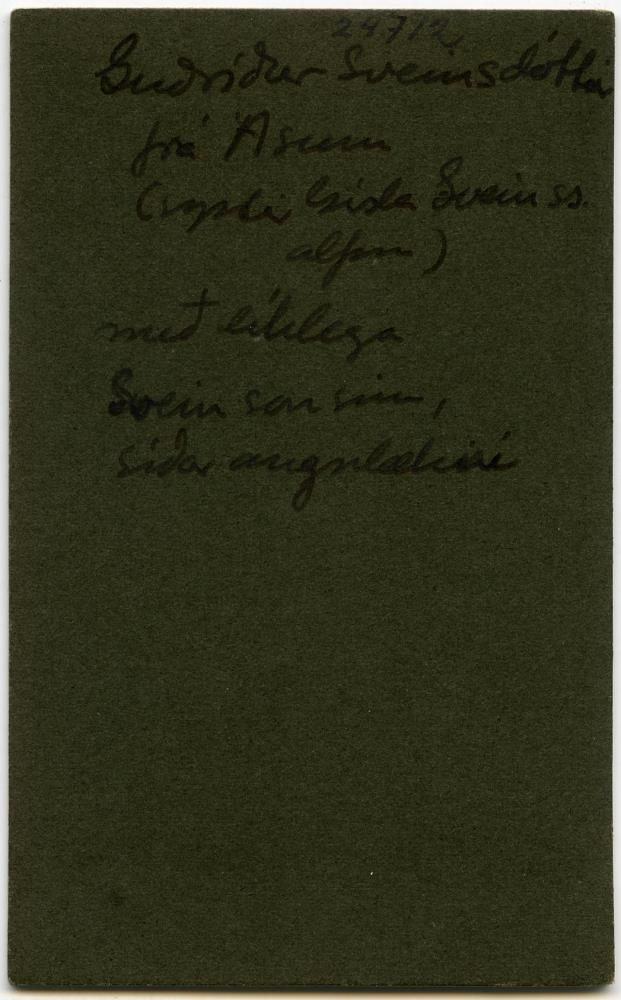 24712
Guðríður Sveinsdóttir
frá Ásum
(systir Gísla Sveinss.
alþm)
með líklega
Svein son sinn,
síðar augnlækni